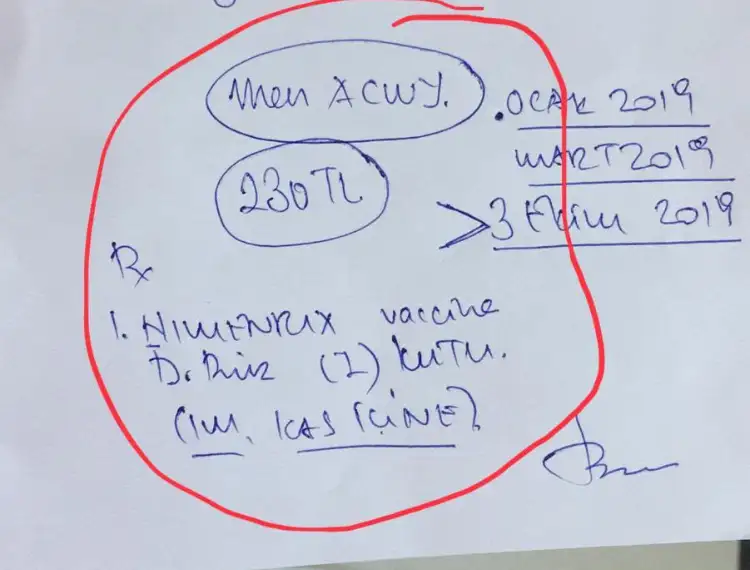 Men ACWY.
.OCAK 2019
MART 2019
230 TL
>3 Ekim 2019
Rx
1. NIMENRIX vaccine
D. Biz (1) KUTU.
(IM. KAS İÇİNE)